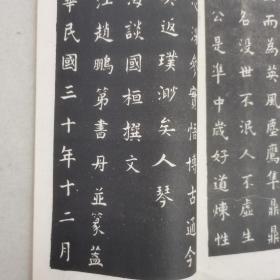 而為英風塵鷹隼鼎鼎
名沒世不泯人不虛生
公是準中歲好道煉性
參實悟博古通今
返璞渺矣人琴
海談國桓撰文
江趙鵬第書丹並篆蓋
華民國三十年十二月